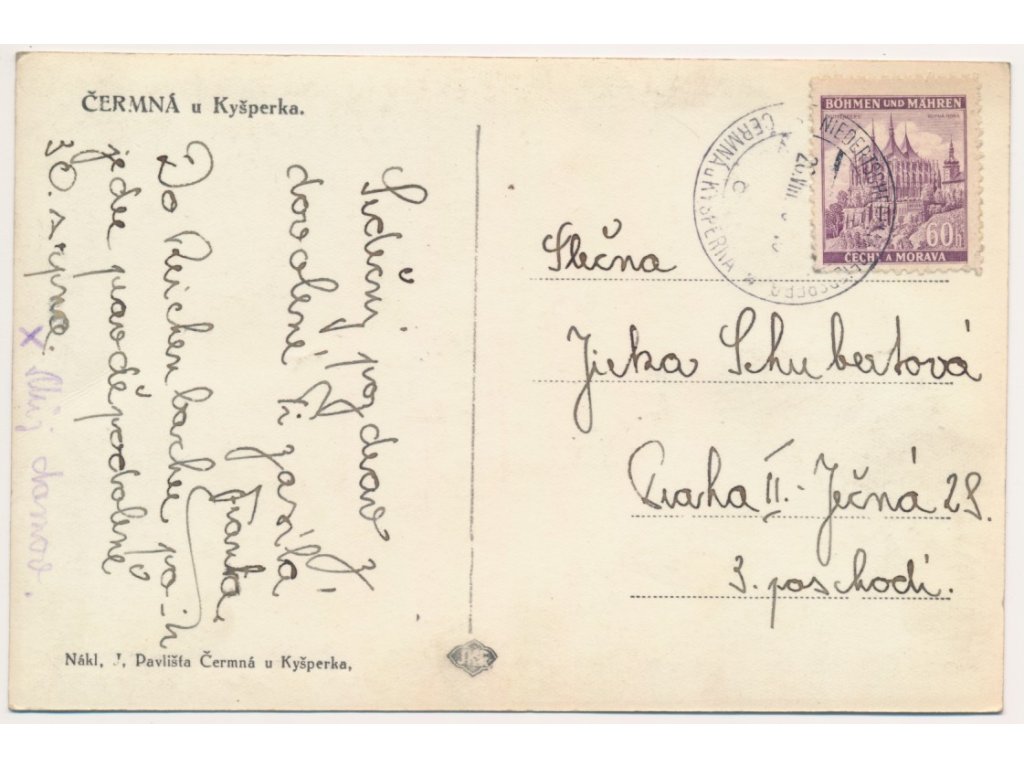 ČERMNÁ u Kyšperka.
Srdečný pozdrav z
dovolené, Ti zasílá
Franta.
Do Reichenbachu po-
jedu pravděpodobně
30. srpna.
x Můj domov.
Nákl, J, Pavlišta Čermná u Kyšperka,
BÖHMEN UND MÄHREN
60h
ČECHY A MORAVA
ČERMNÁ u KYŠPERKA
Slečna
Jirka Schubertová
Praha II.- Ječná 28.
3. poschodí.